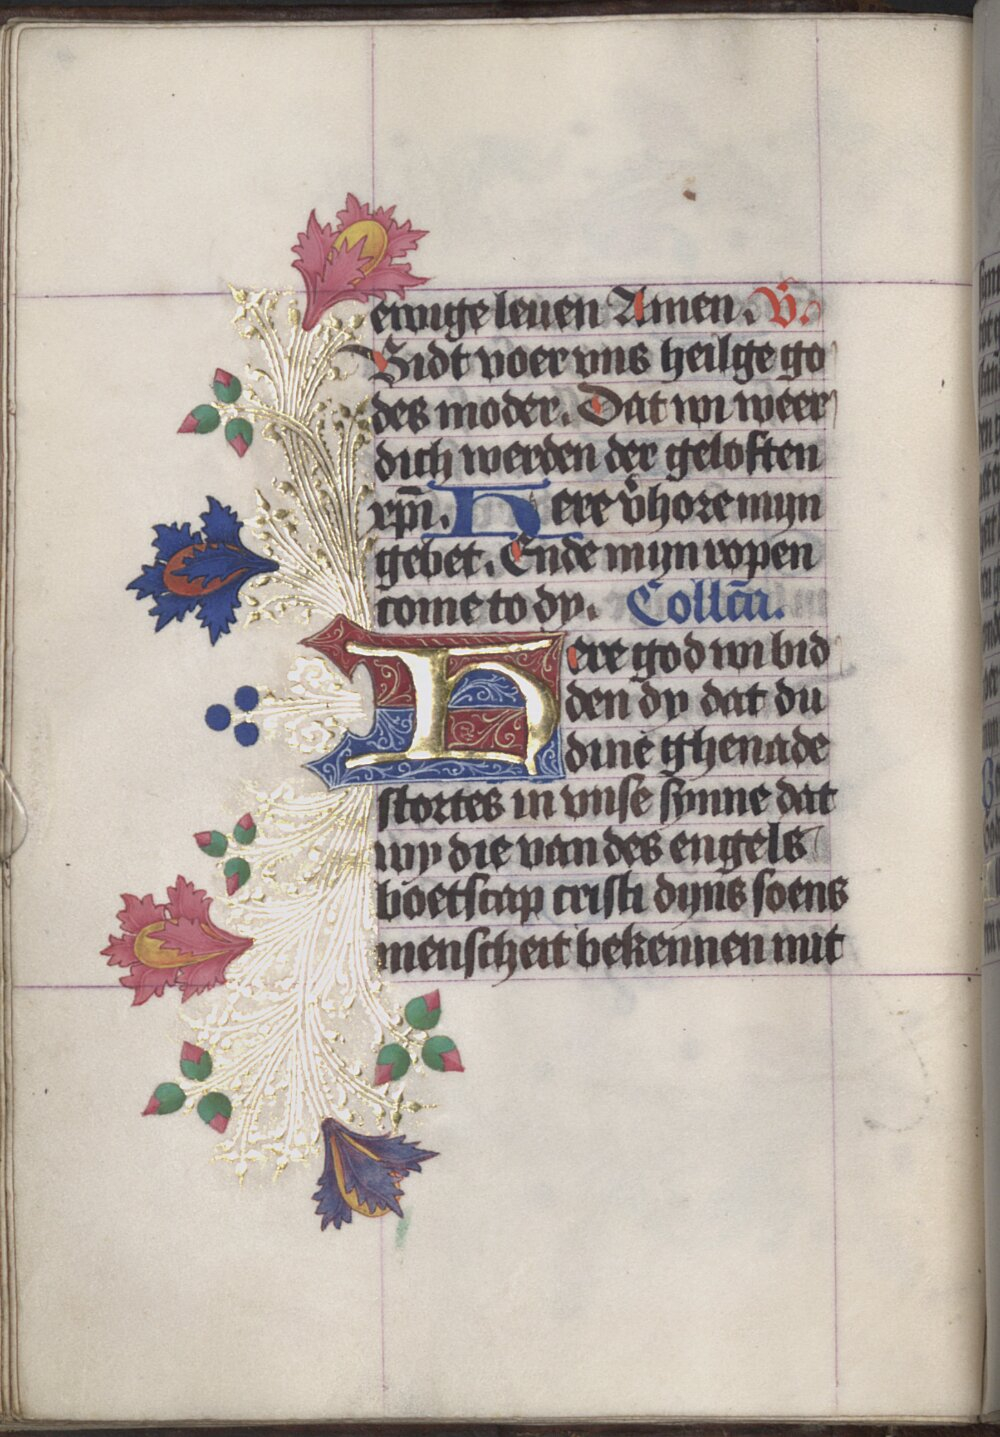 ewige leuen Amen. V.
Bidt voer vns heilge go
des moder. Dat wi weer
dich werden der geloften
xpī. Here v̇hore myn
gebet. Ende myn ropen
come to dy. Collcā.
Here god wi bid
den dy dat du
dine ghenade
stortes in vnse synne dat
wy die van des engels
boetscap cristi dyns soens
menscheit bekennen mit